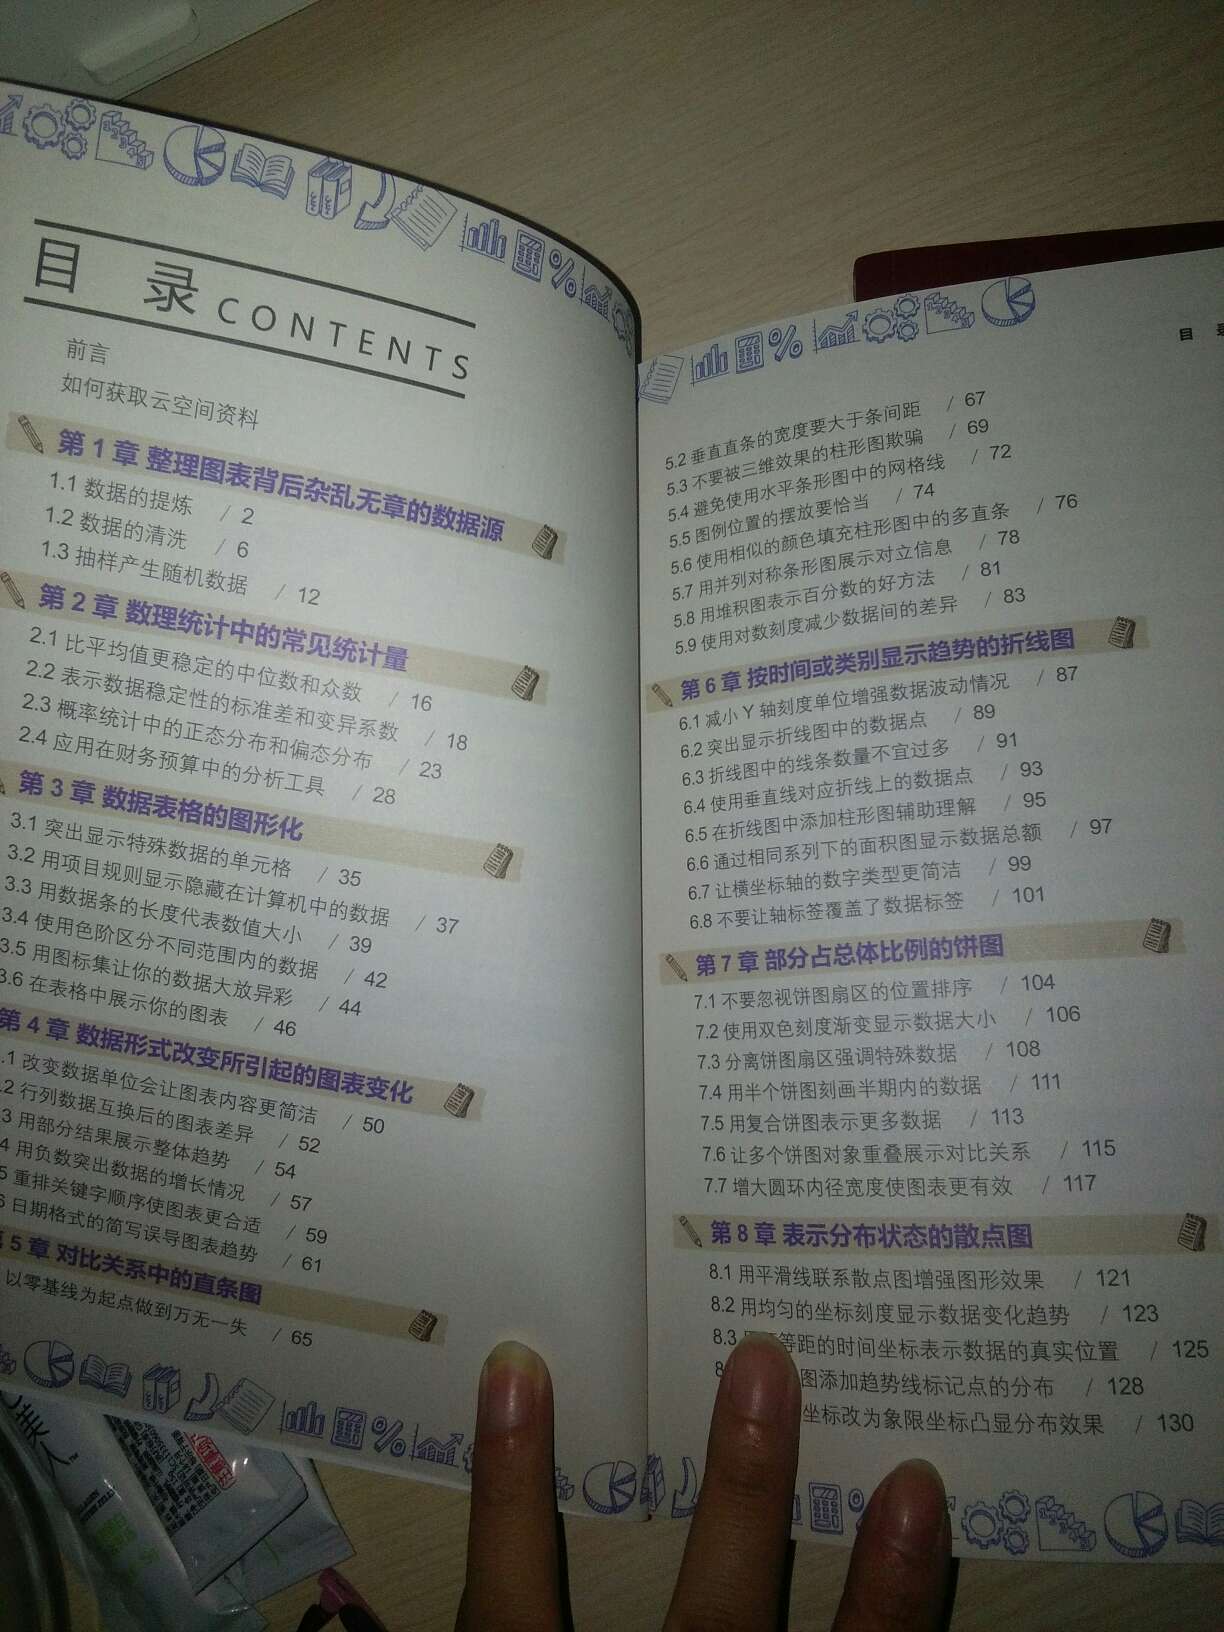 目 录 CONTENTS
前言
如何获取云空间资料
第 1 章 整理图表背后杂乱无章的数据源
1.1 数据的提炼 / 2
1.2 数据的清洗 / 6
1.3 抽样产生随机数据 / 12
第 2 章 数理统计中的常见统计量
2.1 比平均值更稳定的中位数和众数 / 16
2.2 表示数据稳定性的标准差和变异系数 / 18
2.3 概率统计中的正态分布和偏态分布 / 23
2.4 应用在财务预算中的分析工具 / 28
第 3 章 数据表格的图形化
3.1 突出显示特殊数据的单元格 / 35
3.2 用项目规则显示隐藏在计算机中的数据 / 37
3.3 用数据条的长度代表数值大小 / 39
3.4 使用色阶区分不同范围内的数据 / 42
3.5 用图标集让你的数据大放异彩 / 44
3.6 在表格中展示你的图表 / 46
第 4 章 数据形式改变所引起的图表变化
.1 改变数据单位会让图表内容更简洁 / 50
.2 行列数据互换后的图表差异 / 52
3 用部分结果展示整体趋势 / 54
4 用负数突出数据的增长情况 / 57
5 重排关键字顺序使图表更合适 / 59
6 日期格式的简写误导图表趋势 / 61
5 章 对比关系中的直条图
以零基线为起点做到万无一失 / 65
目 录
5.2 垂直直条的宽度要大于条间距 / 67
5.3 不要被三维效果的柱形图欺骗 / 69
5.4 避免使用水平条形图中的网格线 / 72
5.5 图例位置的摆放要恰当 / 74
5.6 使用相似的颜色填充柱形图中的多直条 / 76
5.7 用并列对称条形图展示对立信息 / 78
5.8 用堆积图表示百分数的好方法 / 81
5.9 使用对数刻度减少数据间的差异 / 83
第 6 章 按时间或类别显示趋势的折线图
6.1 减小 Y 轴刻度单位增强数据波动情况 / 87
6.2 突出显示折线图中的数据点 / 89
6.3 折线图中的线条数量不宜过多 / 91
6.4 使用垂直线对应折线上的数据点 / 93
6.5 在折线图中添加柱形图辅助理解 / 95
6.6 通过相同系列下的面积图显示数据总额 / 97
6.7 让横坐标轴的数字类型更简洁 / 99
6.8 不要让轴标签覆盖了数据标签 / 101
第 7 章 部分占总体比例的饼图
7.1 不要忽视饼图扇区的位置排序 / 104
7.2 使用双色刻度渐变显示数据大小 / 106
7.3 分离饼图扇区强调特殊数据 / 108
7.4 用半个饼图刻画半期内的数据 / 111
7.5 用复合饼图表示更多数据 / 113
7.6 让多个饼图对象重叠展示对比关系 / 115
7.7 增大圆环内径宽度使图表更有效 / 117
第 8 章 表示分布状态的散点图
8.1 用平滑线联系散点图增强图形效果 / 121
8.2 用均匀的坐标刻度显示数据变化趋势 / 123
8.3 等距的时间坐标表示数据的真实位置 / 125
图添加趋势线标记点的分布 / 128
坐标改为象限坐标凸显分布效果 / 130